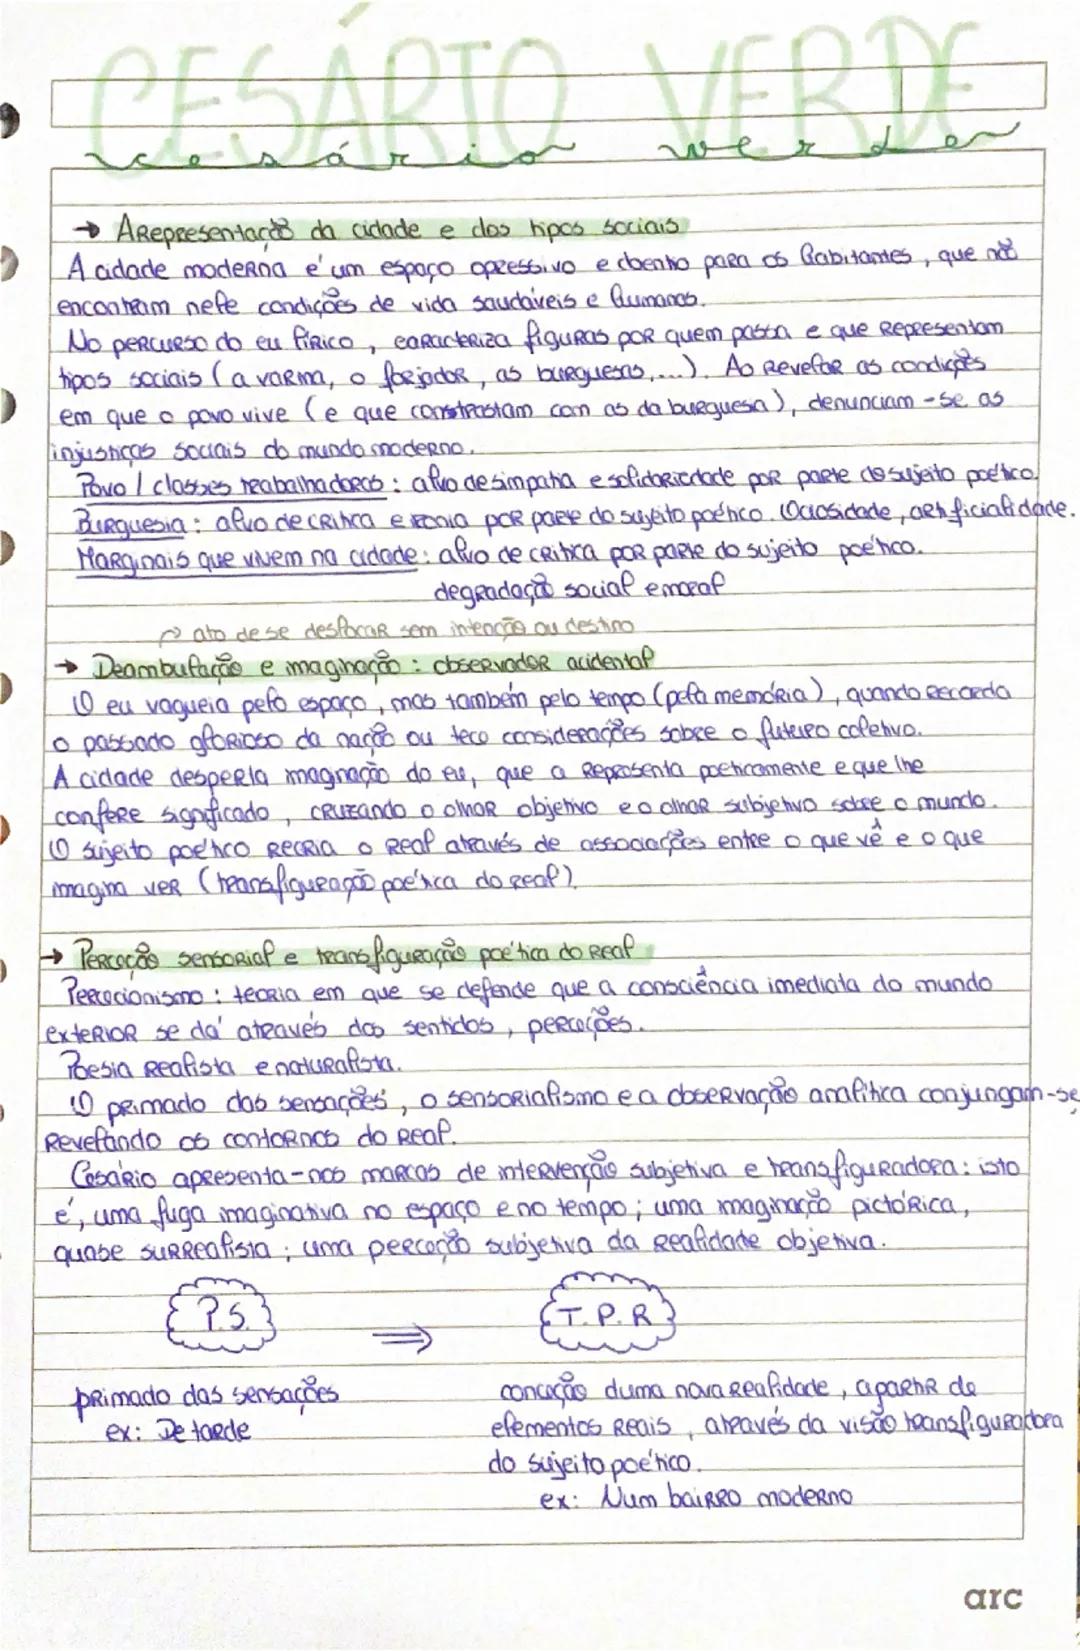 CESÁRIO VERDE
cesário verde
→ A representação da cidade e dos tipos sociais
A cidade moderna é um espaço opressivo e doentio para os habitantes, que não
encontram nele condições de vida saudáveis e humanas.
No percurso do eu lírico, caracteriza figuras por quem passa e que representam
tipos sociais (a varina, o forjador, as burguesas,...). Ao revelar as condições
em que o povo vive (e que constrastam com as da burguesa), denunciam-se as
injustiças sociais do mundo moderno.
Povo / classes trabalhadoras: alvo de simpatia e solidariedade por parte do sujeito poético.
Burguesia: alvo de crítica e ironia por parte do sujeito poético. Ociosidade, artificialidade.
Marginais que vivem na cidade: alvo de crítica por parte do sujeito poético.
degradação social e moral
↱ ato de se deslocar sem intenção ou destino
→ Deambulação e imaginação: observador acidental
O eu vagueia pelo espaço, mas também pelo tempo (pela memória), quando recorda
o passado glorioso da nação ou tece considerações sobre o futuro coletivo.
A cidade desperta imaginação do eu, que a representa poeticamente e que lhe
confere significado, cruzando o olhar objetivo e o olhar subjetivo sobre o mundo.
O sujeito poético recria o real através de associações entre o que vê e o que
imagina ver (transfiguração poética do real).
→ Perceção sensorial e transfiguração poética do real
Percecionismo: teoria em que se defende que a consciência imediata do mundo
exterior se dá através dos sentidos, perceções.
Poesia realista e naturalista.
O primado das sensações, o sensorialismo e a observação analítica conjungam-se,
revelando os contornos do real.
Cesário apresenta-nos marcas de intervenção subjetiva e transfiguradora: isto
é, uma fuga imaginativa no espaço e no tempo; uma imaginação pictórica,
quase surrealista; uma perceção subjetiva da realidade objetiva.
P.S. ⇒ T.P.R
primado das sensações
ex: De tarde
conceção duma nova realidade, a partir de
elementos reais, através da visão transfiguradora
do sujeito poético.
ex: Num bairro moderno
arc